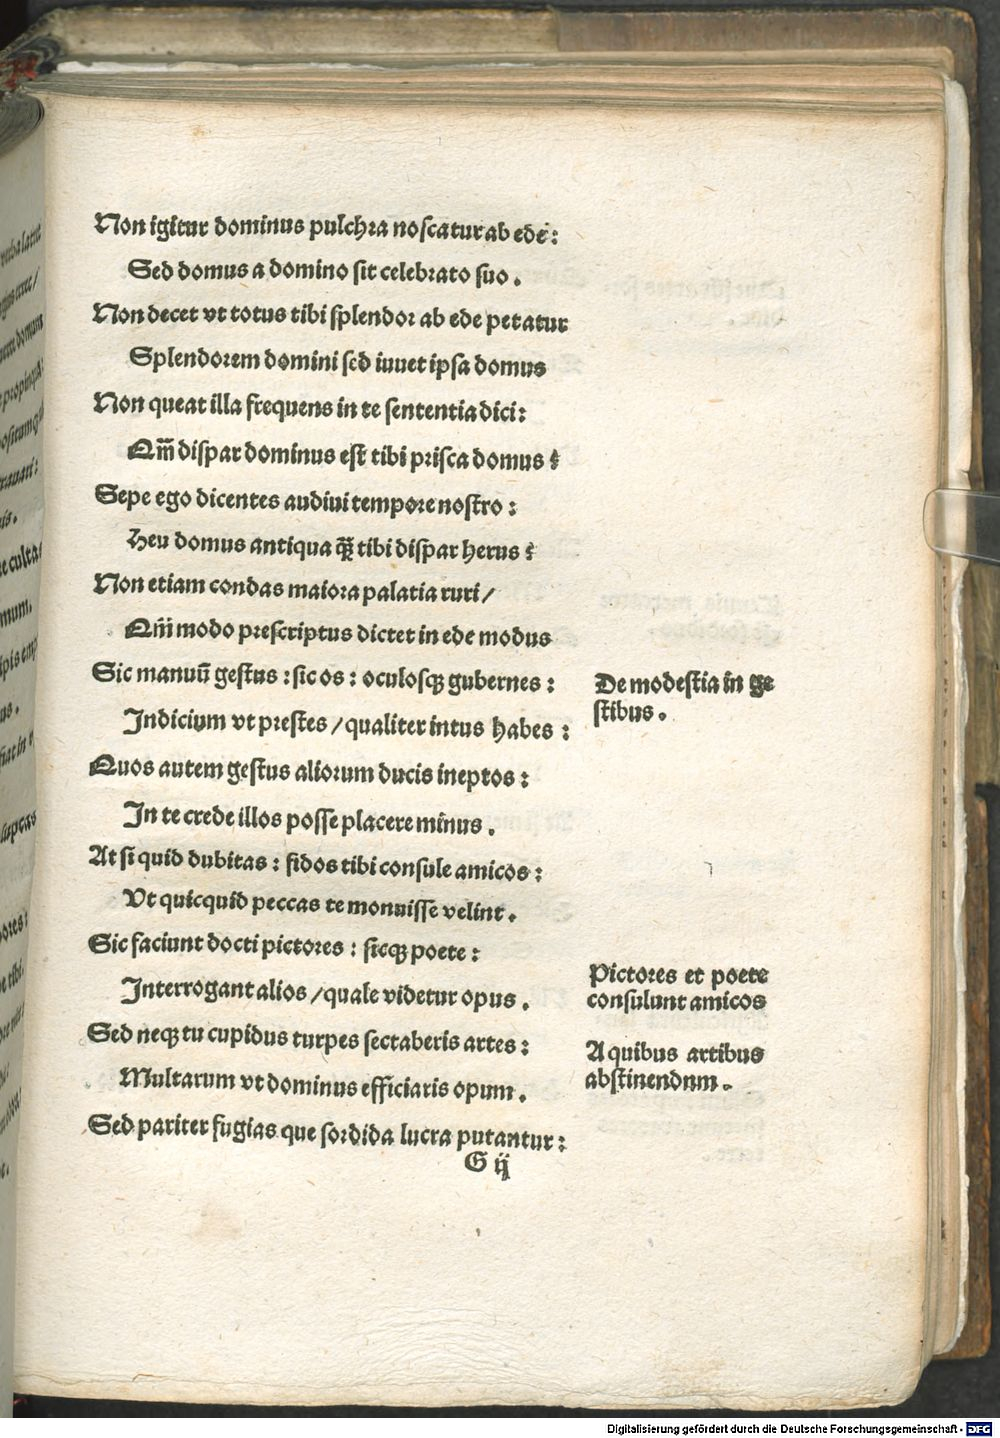 Non igitur dominus pulchra noscatur ab ede:
Sed domus a domino sit celebrato suo.
Non decet vt totus tibi splendor ab ede petatur
Splendorem domini sed iuuet ipsa domus
Non queat illa frequens in te sententia dici:
Qm̄ dispar dominus est tibi prisca domus:
Sepe ego dicentes audiui tempore nostro:
Heu domus antiqua q̄ꝫ tibi dispar herus:
Non etiam condas maiora palatia ruri/
Qm̄ modo prescriptus dictet in ede modus
Sic manuū gestus: sic os: oculosqꝫ gubernes:
De modestia in ge
stibus.
Indicium vt prestes/qualiter intus habes:
Quos autem gestus aliorum ducis ineptos:
In te crede illos posse placere minus.
At si quid dubitas: fidos tibi consule amicos:
Vt quicquid peccas te monuisse velint.
Sic faciunt docti pictores: sicqꝫ poete:
Pictores et poete
consulunt amicos
Interrogant alios/quale videtur opus.
Sed neqꝫ tu cupidus turpes sectaberis artes:
A quibus artibus
abstinendum.
Multarum vt dominus efficiaris opum.
Sed pariter fugias que sordida lucra putantur:
G ij
Digitalisierung gefördert durch die Deutsche Forschungsgemeinschaft - DFG